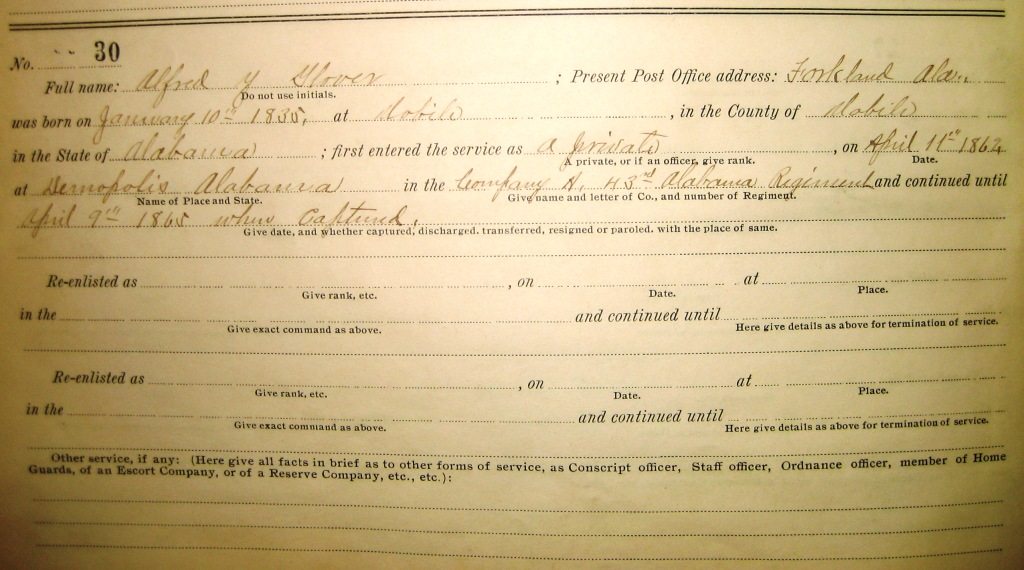 No. 30
Full name: Alfred Y Glover ; Present Post Office address: Forkland Ala.
Do not use initials.
was born on January 10th 1835, at Mobile , in the County of Mobile
in the State of Alabama ; first entered the service as a Private , on April 11th 1862
A private, or if an officer, give rank. Date.
at Demopolis Alabama in the Company A. 43rd Alabama Regiment and continued until
Name of Place and State. Give name and letter of Co., and number of Regiment.
April 9th 1865 when Captured.
Give date, and whether captured, discharged. transferred, resigned or paroled. with the place of same.
Re-enlisted as , on at
Give rank, etc. Date. Place.
in the and continued until
Give exact command as above. Here give details as above for termination of service.
Re-enlisted as , on at
Give rank, etc. Date. Place.
in the and continued until
Give exact command as above. Here give details as above for termination of service.
Other service, if any: (Here give all facts in brief as to other forms of service, as Conscript officer, Staff officer, Ordnance officer, member of Home
Guards, of an Escort Company, or of a Reserve Company, etc., etc.):